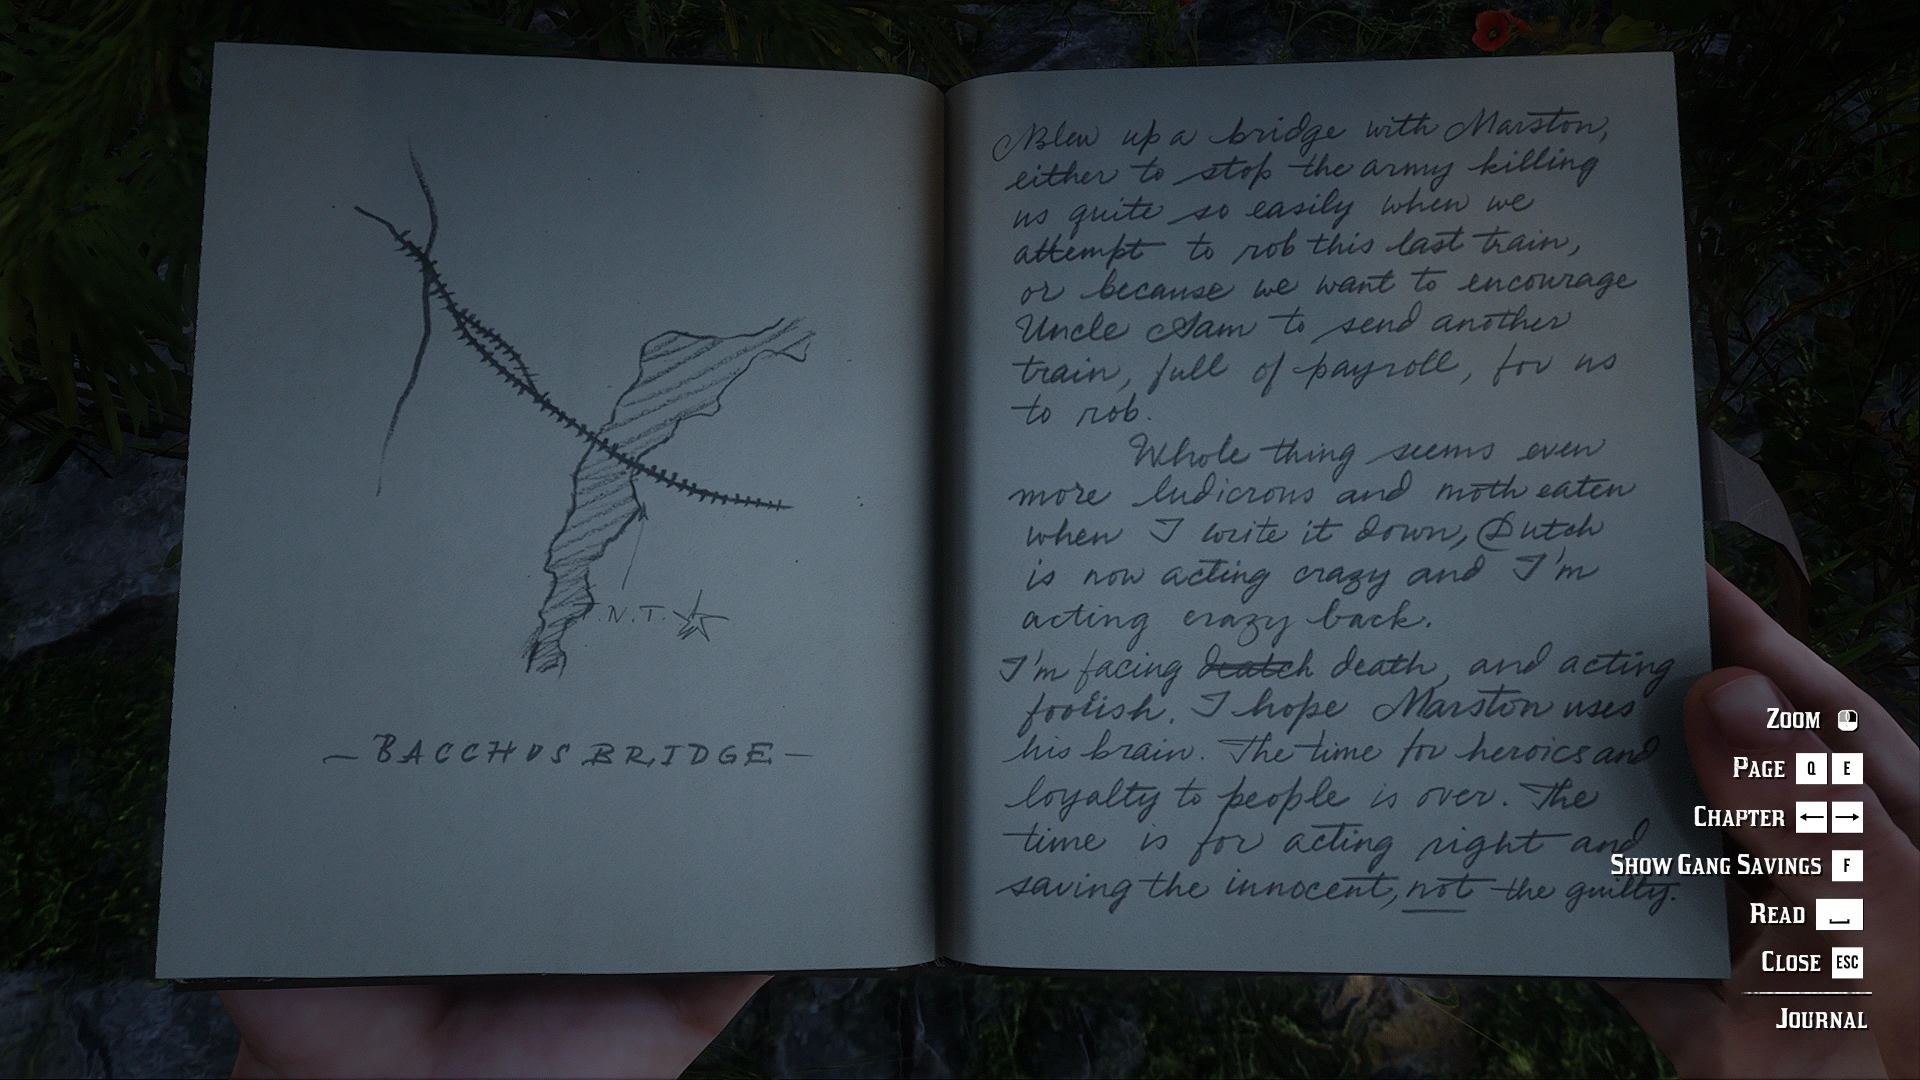 T.N.T.
— BACCHUS BRIDGE —
Blew up a bridge with Marston,
either to stop the army killing
us quite so easily when we
attempt to rob this last train,
or because we want to encourage
Uncle Sam to send another
train, full of payroll, for us
to rob.
Whole thing seems even
more ludicrous and moth eaten
when I write it down, Dutch
is now acting crazy and I'm
acting crazy back.
I'm facing deatch death, and acting
foolish. I hope Marston uses
his brain. The time for heroics and
loyalty to people is over. The
time is for acting right and
saving the innocent, not the guilty.
ZOOM
PAGE Q E
CHAPTER ← →
SHOW GANG SAVINGS F
READ
CLOSE ESC
JOURNAL